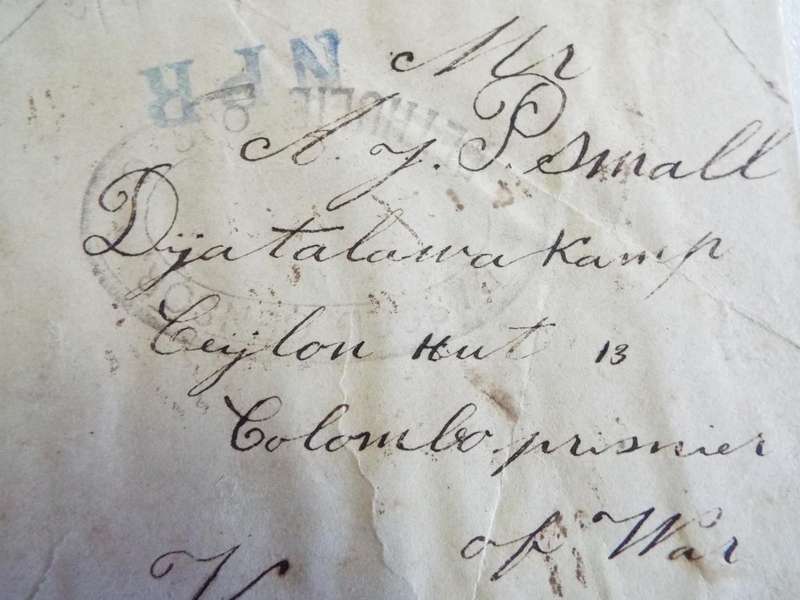 NLR
Mr
A. J. P. Small
Dyatalawa Kamp
Ceijlon Hut 13
Colombo prisnier
of War